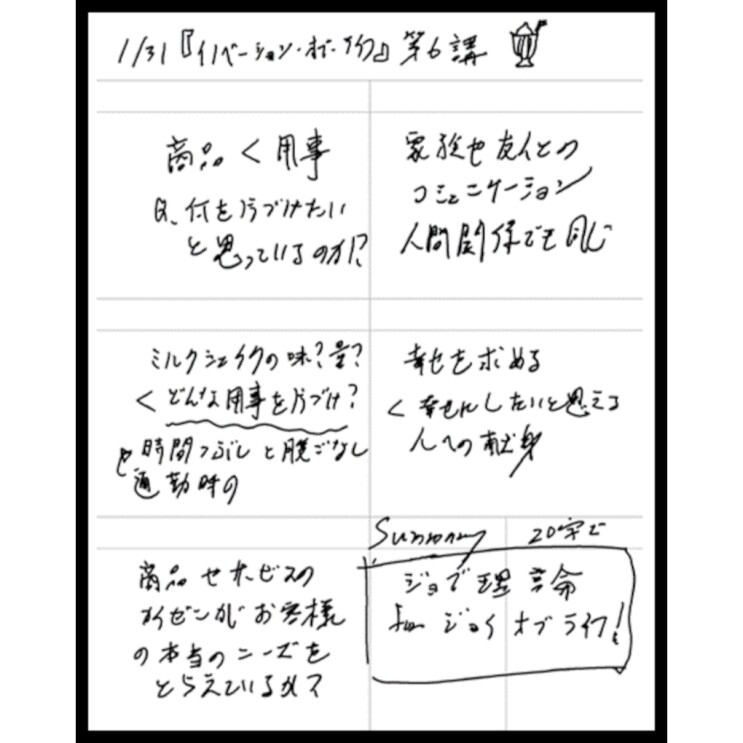 1/31『イノベーション・オブ・ライフ』第6講
商品 < 用事
Q、何を片づけたい
と思っているのか?
ミルクシェイクの味?量?
< どんな用事を片づけ?
時間つぶしと腹ごなし
通勤時の
商品やサービスの
カイゼンがお客様
の本当のニーズを
とらえているか?
家族や友人との
コミュニケーション
人間関係でも同じ
幸せを求める
< 幸せにしたいと思える
人への献身
Summary 20字で
ジョブ理論
for ジョイ オブ ライフ!